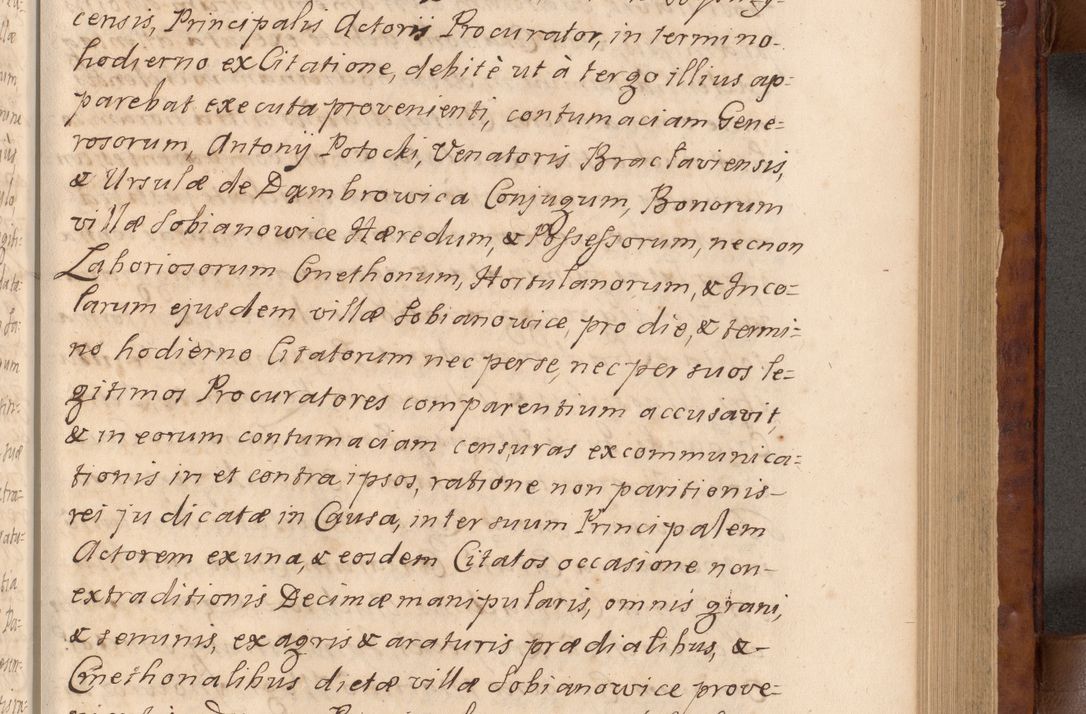 censis, Principalis Actoris Procurator, in termino
hodierno ex Citatione, debitè ut à tergo illius ap=
parebat executa provenienti, contumaciam Gene=
rosorum, Antonij Potocki, Venatoris Braclaviensis,
& Ursulæ de Dąmbrowica Conjugum, Bonorum
villæ Sobianowice Hæredum, & Possessorum, necnon
Laboriosorum Cmethonum, Hortulanorum, & Inco=
larum ejusdem villæ Sobianowice, pro die, & termi=
no hodierno Citatorum nec per se, nec per suos le=
gitimos Procuratores comparentium accusavit,
& in eorum contumaciam censuras excommunica=
tionis in et contra ipsos, ratione non paritionis
rei judicatæ in Causa, inter suum Principalem
Actorem ex una, & eosdem Citatos occasione non
extraditionis Decimæ manipularis, omnis grani,
& seminis, ex agris & araturis prædialibus, &
Cmethonalibus dictæ villæ Sobianowice prove=